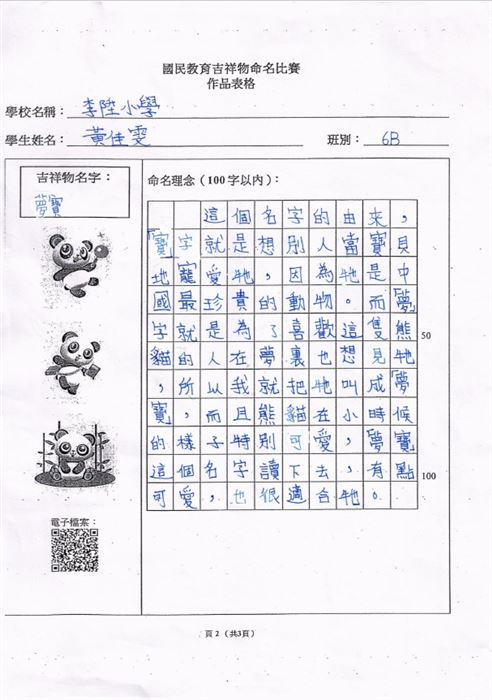 國民教育吉祥物命名比賽
作品表格
學校名稱：李陞小學
學生姓名：黃佳雯 班別：6B
吉祥物名字：
夢寶
命名理念（100字以內）：
這個名字的由來，
「寶」字就是想別人當寶貝
地寵愛牠，因為牠是中
國最珍貴的動物。而「夢」
字就是為了喜歡這隻熊 50
貓的人在夢裏也想見牠
，所以我就把牠叫成「夢
寶」，而且熊貓在小時候
的樣子特別可愛，「夢寶」
這個名字讀下去，有點 100
可愛，也很適合牠。
電子檔案：
頁 2 （共3頁）